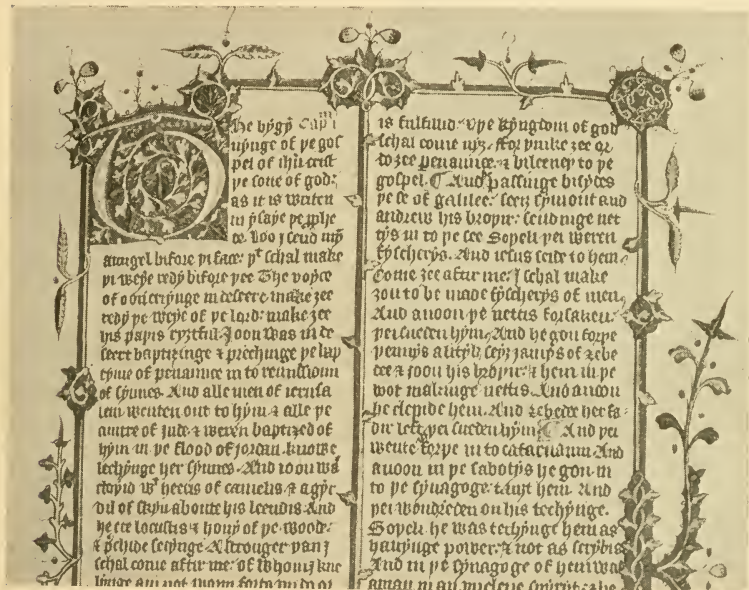 The bygyn Capm i
nynge of þe gos
pel of ihu crist
þe sone of god:
as it is writen
in ysaye þe prophe
te. Loo j send myn
aungel bifore þi face: þt schal make
þi weye redy bifore þee The voyce
of oon cryinge in desert: make zee
redy þe weye of þe lord: make zee
his paþis ryztful. Joon was in de
sert baptizinge & prechinge þe bap
tyme of penaunce in to remissioun
of synnes. And alle men of ierusa
lem wenten out to hym & alle þe
cuntre of jude & weren baptized of
hym in þe flood of jordan. knowle
lechynge her synnes. And ioon was
cloþid wt heeris of camelis & a gyr
dil of skyn aboute his leendis. And
he eet locustis & hony of þe wood:
& prchide seiynge. A stronger þan j
schal come aftir me: of whom j kne
lynge am not worþi forto vndo or
is fulfillid: & þe kyngdom of god
schal come nyz. ffor þinke zee or
do zee penaunce: & bileeueþ to þe
gospel. And passinge bisydes
þe se of galilee: seez symont and
andrew his broþir: sendinge net
tys in to þe see Sopeli þei weren
fyscherys. And iesus seide to hem
Come zee aftur me: J schal make
zou to be made fyscherys of men.
And anoon þe nettis forsaken:
þei sueden hym. And he gon forþe
þennys a lityl: seyz jamys of zebe
dee & joon his broþir: & hem in þe
boot makinge nettis. And anoon
he clepide hem. And zebede her fa-
dir left: þei sueden hym And þei
wente forþe in to cafarnaum And
anoon in þe sabotys he gon in
to þe synagoge: tauzt hem. And
þei wondreden on his techynge.
Sopeli he was techynge hem as
hauynge power: & not as scrybis
And in þe synagoge of hem was
a man in an vnclene spyrit: & he